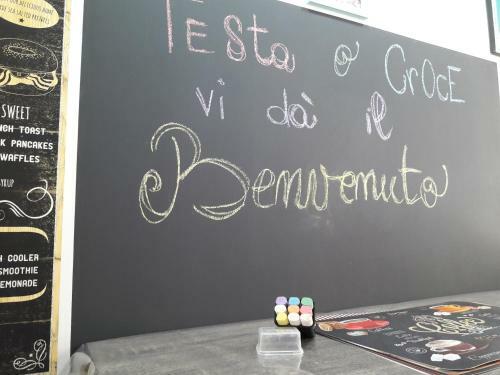 TESta o CrOcE
vi dà il
Benvenuto
SWEET
NCH TOAST
K PANCAKES
WAFFLES
SYRUP
H COOLER
SMOOTHIE
EMONADE
Coffee